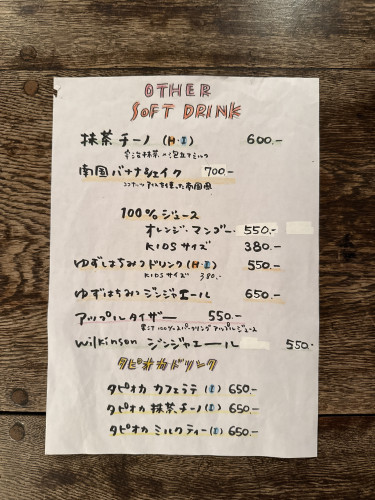 OTHER
SOFT DRINK
抹茶チーノ (H・I) 600.-
宇治抹茶×泡立てミルク
南国バナナシェイク 700.-
100%ジュース
オレンジ・マンゴー 550.-
KIDSサイズ 380.-
ゆずはちみつドリンク (H・I) 550.-
KIDSサイズ 380.-
ゆずはちみつジンジャエール 650.-
アップルタイザー 550.-
果汁100%スパークリングアップルジュース
Wilkinson ジンジャエール 550.-
タピオカドリンク
タピオカ カフェラテ (I) 650.-
タピオカ 抹茶チーノ (I) 650.-
タピオカ ミルクティー (I) 650.-